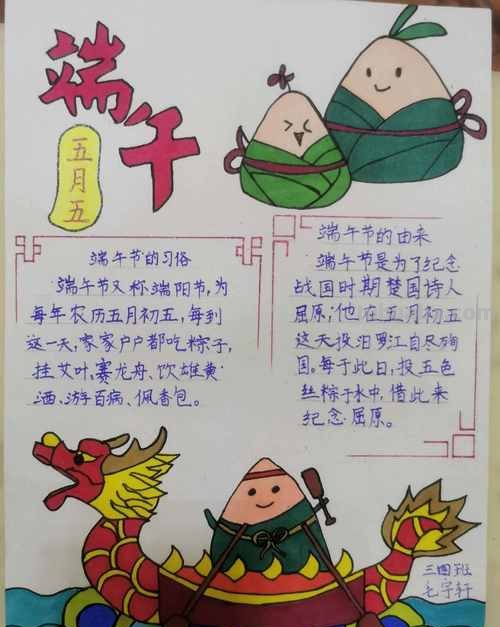 端午
五月五
端午节的习俗
端午节又称端阳节,为
每年农历五月初五,每到
这一天,家家户户都吃粽子,
挂艾叶,赛龙舟、饮雄黄
酒、游百病、佩香包。
端午节的由来
端午节是为了纪念
战国时期楚国诗人
屈原,他在五月初五
这天投汨罗江自尽殉
国。每于此日,投五色
丝粽于水中,借此来
纪念屈原。
三四班
毛宇轩